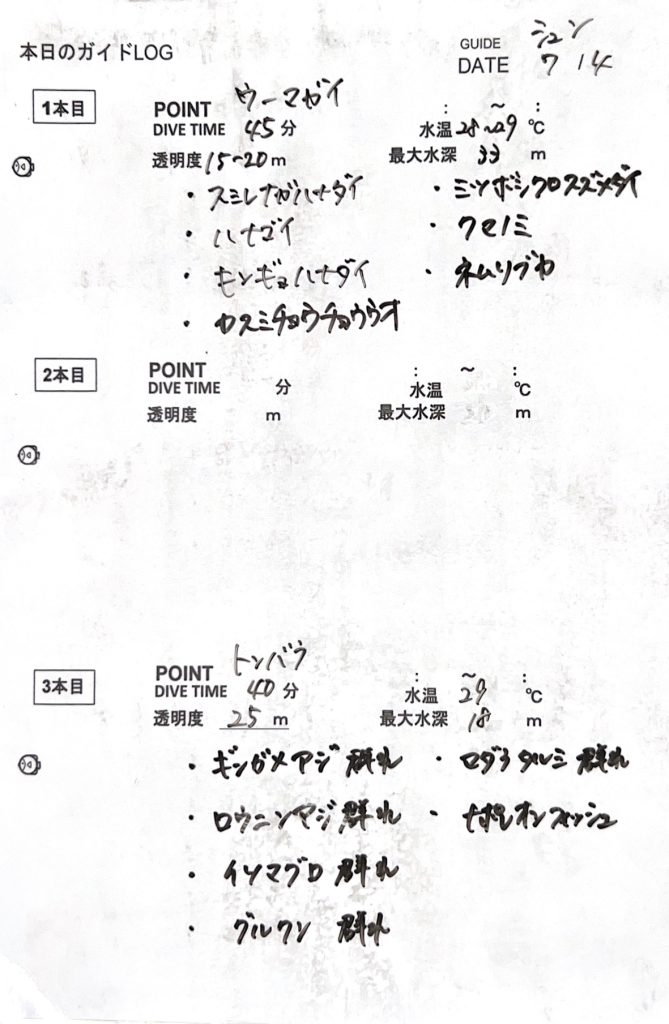 本日のガイドLOG
GUIDE シュン
DATE 7 14
1本目
POINT ウーマガイ : ~ :
DIVE TIME 45 分 水温 28~29 ℃
透明度 15~20 m 最大水深 33 m
・スミレナガハナダイ ・ミツボシクロスズメダイ
・ハナゴイ ・クマノミ
・キンギョハナダイ ・ネムリブカ
・カスミチョウチョウウオ
2本目
POINT : ~ :
DIVE TIME 分 水温 ℃
透明度 m 最大水深 m
3本目
POINT トンバラ : ~ :
DIVE TIME 40 分 水温 29 ℃
透明度 25 m 最大水深 18 m
・ギンガメアジ 群れ ・マダラタルミ 群れ
・ロウニンアジ 群れ ・ナポレオンフィッシュ
・イソマグロ 群れ
・グルクン 群れ